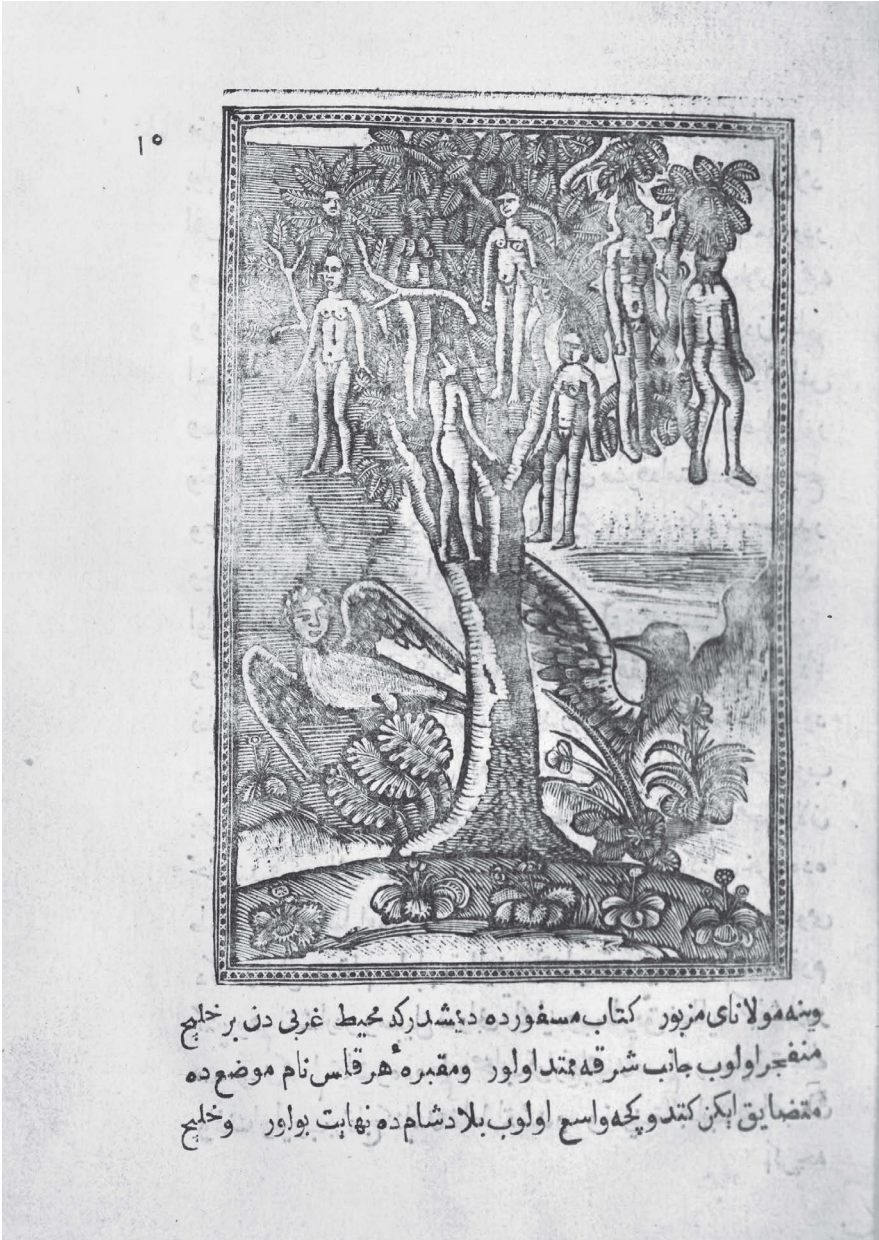 ١٥
وينه مولاناى مزبور كتاب مسفورده ديمشدركه محيط غربى دن بر خليج
منفجر اولوب جانب شرقه ممتد اولور ومقبرهٔ هرقلس نام موضع ده
متضايق ايكن كتدوكجه واسع اولوب بلاد شام ده نهايت بولور وخليج